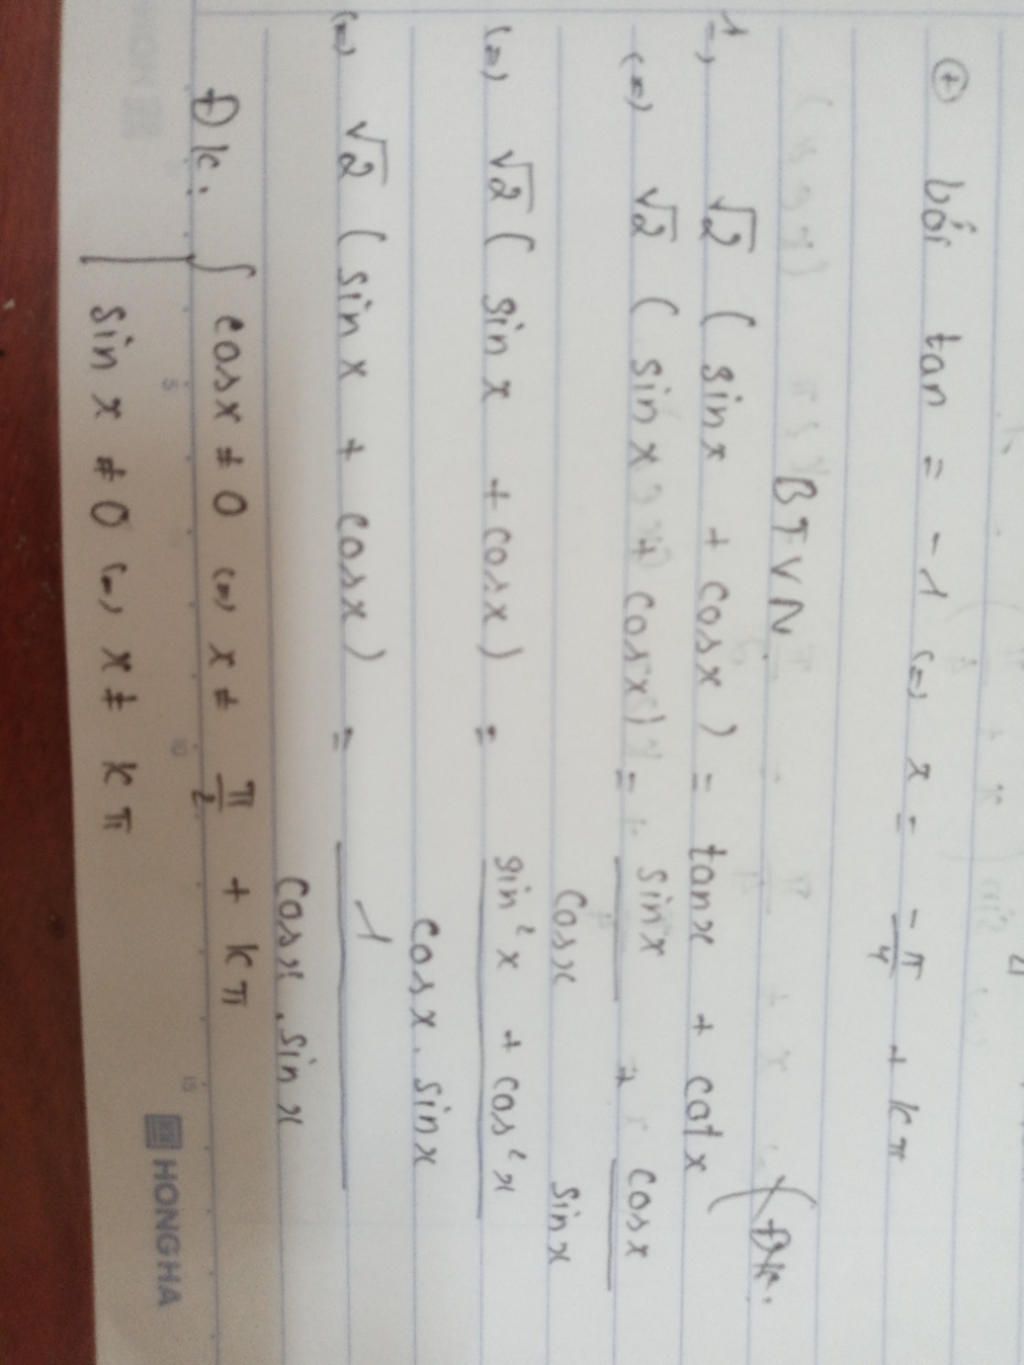 ⊕ bởi tan = -1 (=) x = -π/4 + kπ
BTVN
1=, √2 ( sinx + cosx ) = tanx + cotx (Đk:
(=) √2 ( sinx + cosx ) = sinx/cosx + cosx/sinx
(=) √2 ( sinx + cosx ) = sin²x + cos²x / cosx . sinx
(=) √2 ( sinx + cosx ) = 1 / cosx . sinx
Đk: { cosx ≠ 0 (=) x ≠ π/2 + kπ
sinx ≠ 0 (=) x ≠ kπ
5 10 15
HONG HA